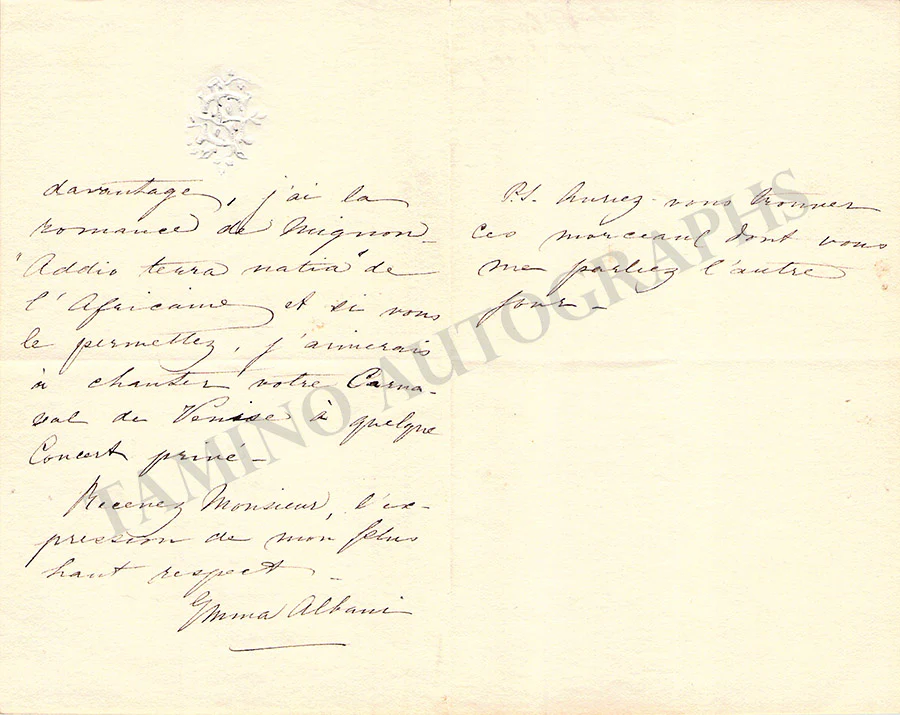 davantage, j'ai la
romance de Mignon -
"Addio terra natia" de
l'Africaine et si vous
le permettez, j'aimerais
à chanter votre Carna-
val de Venise à quelque
Concert privé -
Recevez Monsieur, l'ex-
pression de mon plus
haut respect -
Emma Albani
P.S. Auriez-vous trouver
ces morceaux dont vous
me parliez l'autre
jour -
TAMINO AUTOGRAPHS